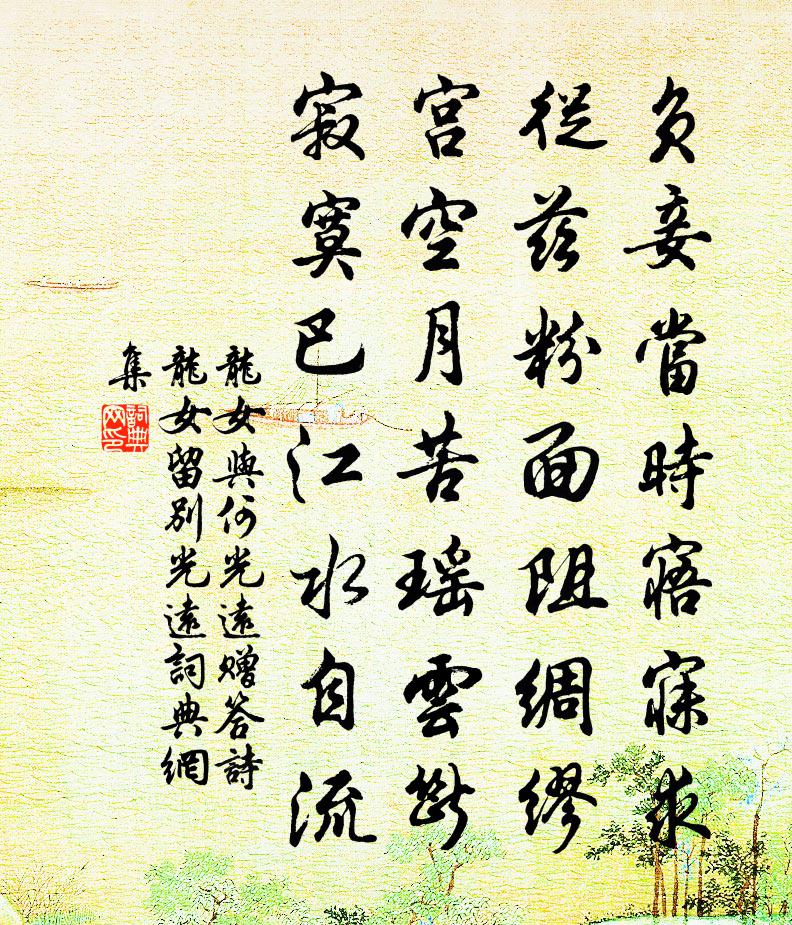 負妾當時寤寐求
從茲粉面阻綢繆
宮空月苦瑤雲斷
寂寞巴江水自流
龍女與何光遠贈答詩
龍女留別光遠詞典網
集
詞典網印